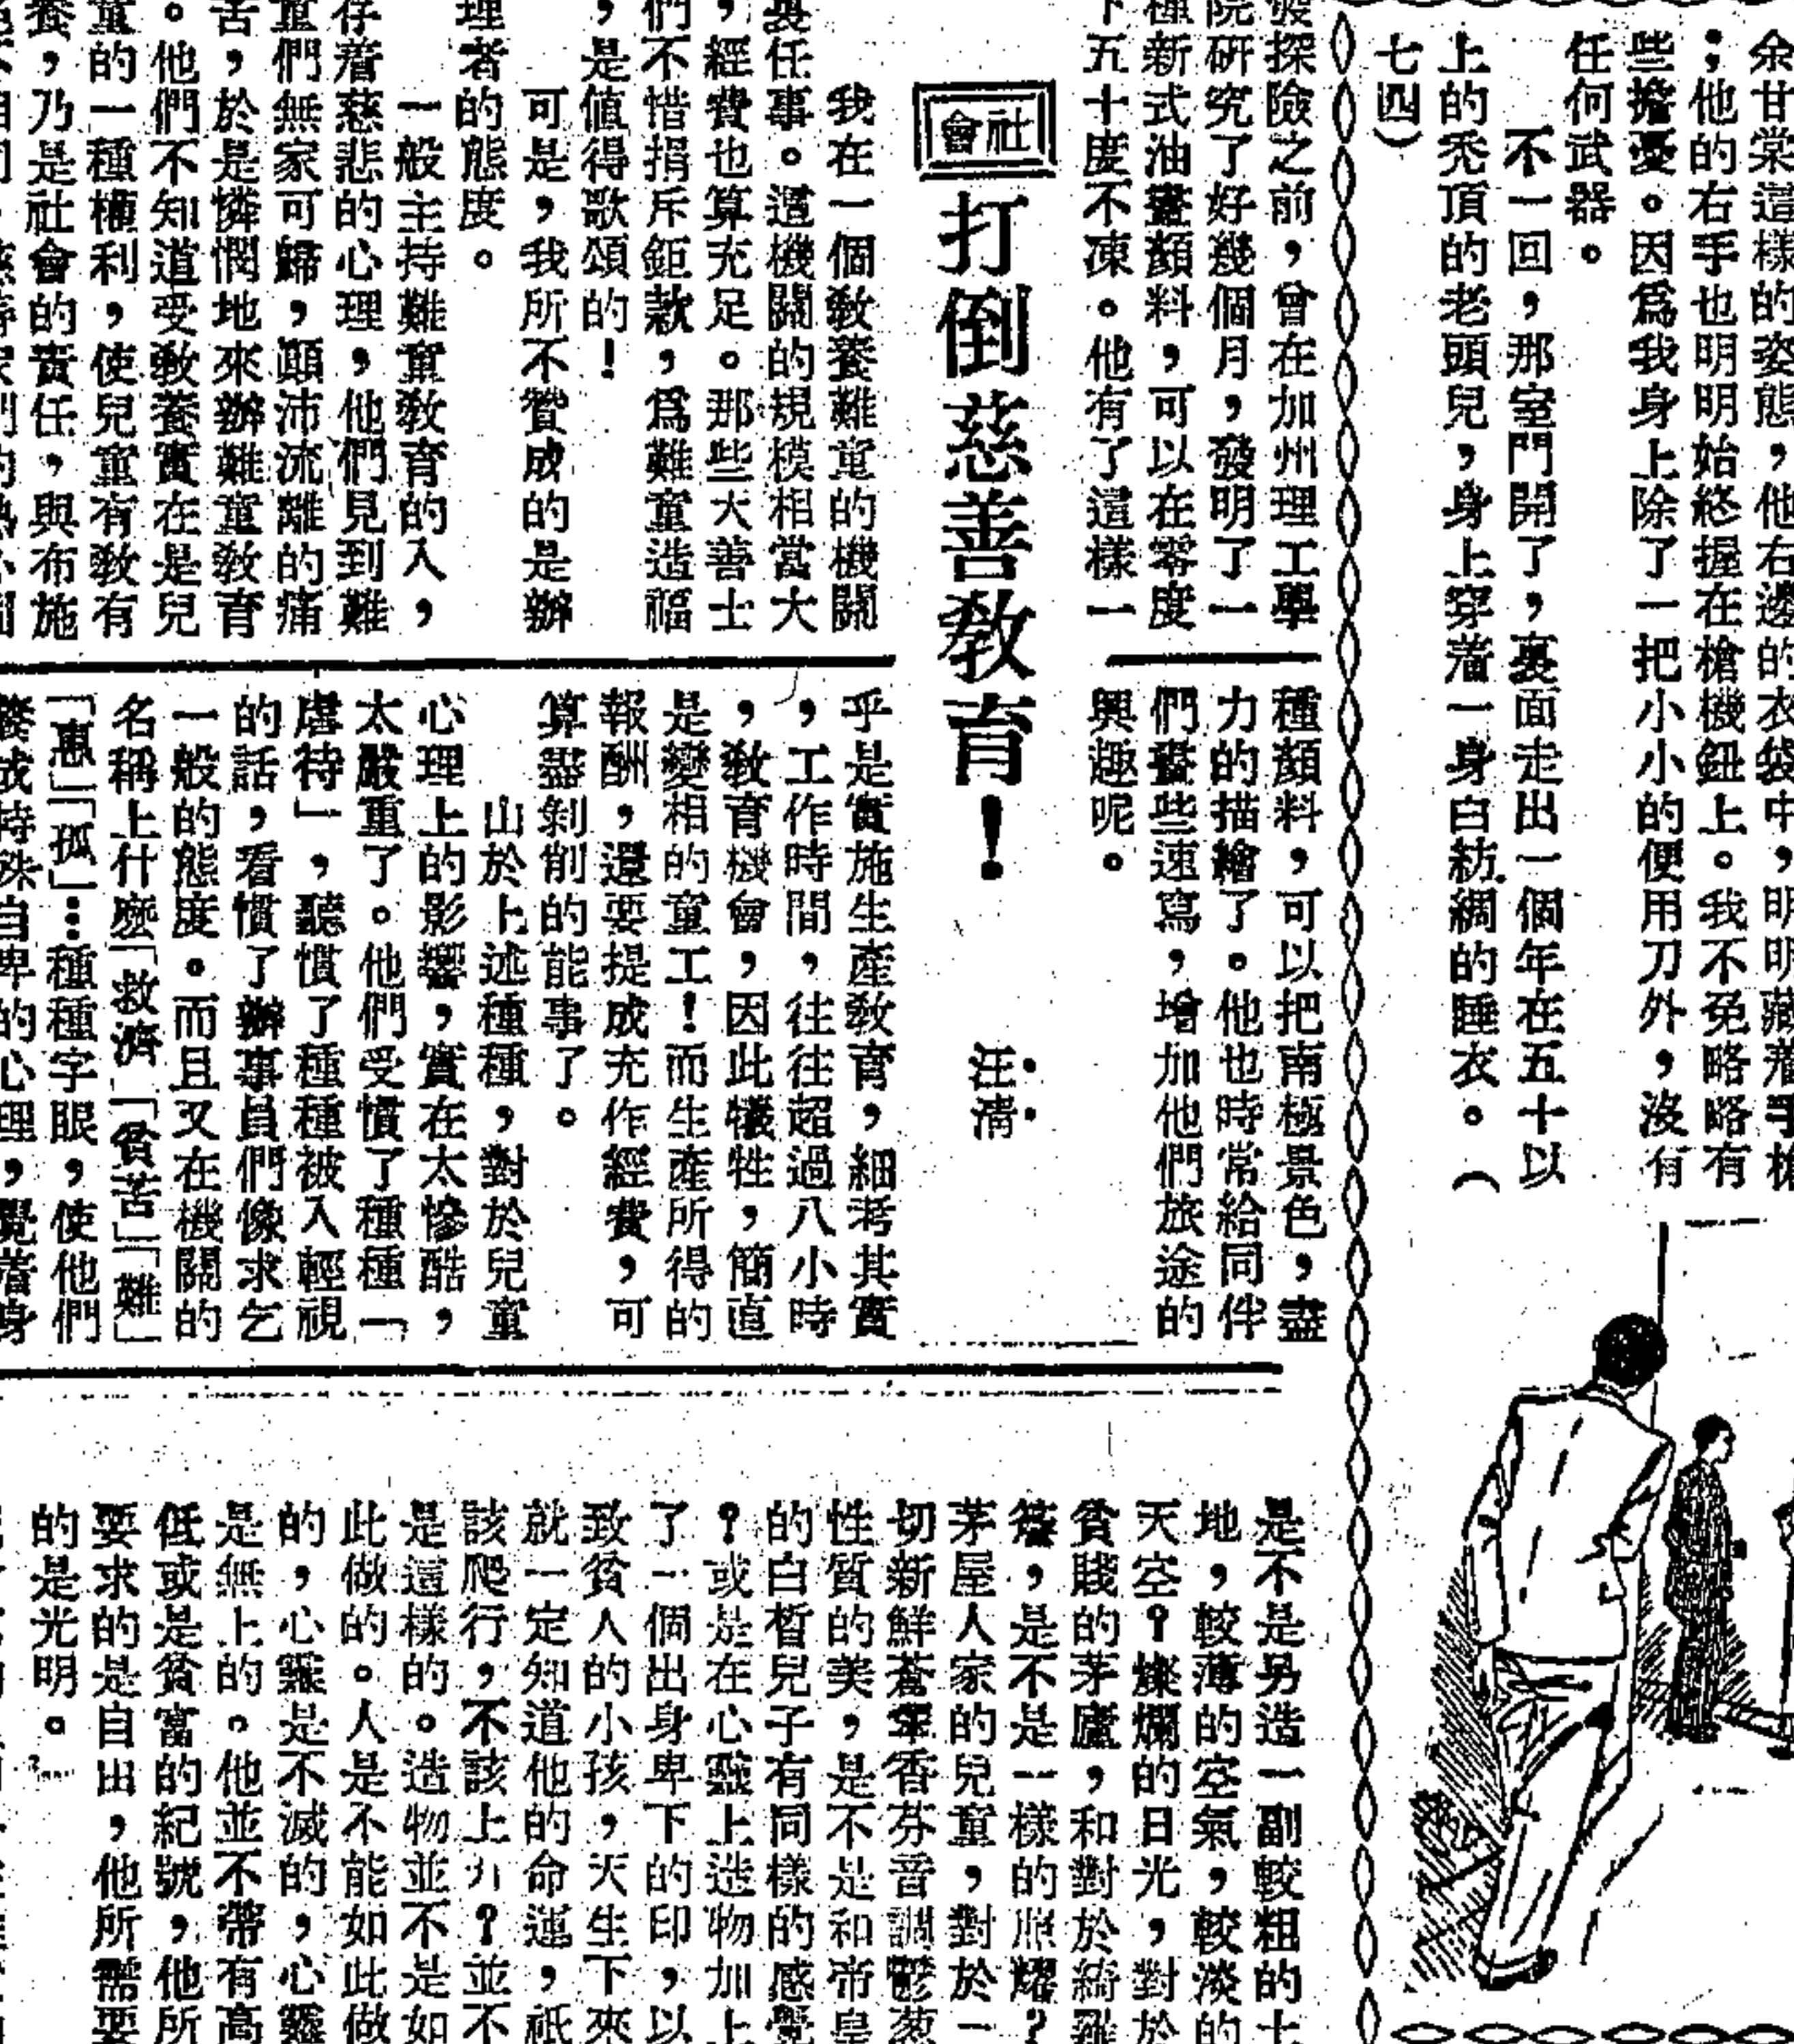 余甘棠這樣的姿態，他右邊的衣袋中，明明藏着手槍
；他的右手也明明始終握在槍機鈕上。我不免略略有
些擔憂。因爲我身上除了一把小小的便用刀外，沒有
任何武器。
不一回，那室門開了，裏面走出一個年在五十以
上的禿頂的老頭兒，身上穿着一身白紡綢的睡衣。（
七四）
發探險之前，曾在加州理工學
院研究了好幾個月，發明了一
種新式油畫顏料，可以在零度
下五十度不凍。他有了這樣一
種顏料，可以把南極景色，盡
力的描繪了。他也時常給同伴
們畫些速寫，增加他們旅途的
興趣呢。
社會
打倒慈善教育！
汪清
我在一個教養難童的機關
裏任事。這機關的規模相當大
，經費也算充足。那些大善士
們不惜捐斥鉅款，爲難童造福
，是値得歌頌的！
可是，我所不贊成的是辦
理者的態度。
一般主持難童教育的人，
存着慈悲的心理，他們見到難
童們無家可歸，顚沛流離的痛
苦，於是憐憫地來辦難童教育
。他們不知道受教養實在是兒
童的一種權利，使兒童有教有
養，乃是社會的責任，與布施
乎是實施生產敎育，細考其實
，工作時間，往往超過八小時
，敎育機會，因此犧牲，簡直
是變相的童工！而生產所得的
報酬，還要提成充作經費，可
算盡剝削的能事了。
山於上述種種，對於兒童
心理上的影響，實在太慘酷，
太嚴重了。他們受慣了種種「
虐待」，聽慣了種種被人輕視
的話，看慣了辦事員們像求乞
一般的態度。而且又在機關的
名稱上什麼「救濟」「貧苦」「難」
「惠」「孤」…種種字眼，使他們
養成特殊自卑的心理，覺着身
是不是另造一副較粗的土
地，較薄的空氣，較淡的
天空？燦爛的日光，對於
貧賤的茅廬，和對於綺羅
簷，是不是一樣的照耀？
茅屋人家的兒童，對於一
切新鮮蒼翠香芬音調鬱葱
性質的美，是不是和帝皇
的白晳兒子有同樣的感覺
？或是在心靈上造物加上
了一個出身卑下的印，以
致貧人的小孩，天生下來
就一定知道他的命運，祇
該爬行，不該上升？並不
是這樣的。造物並不是如
此做的。人是不能如此做
的，心靈是不滅的，心靈
是無上的。他並不帶有高
低或是貧富的紀號，他所
要求的是自由，他所需要
的是光明。